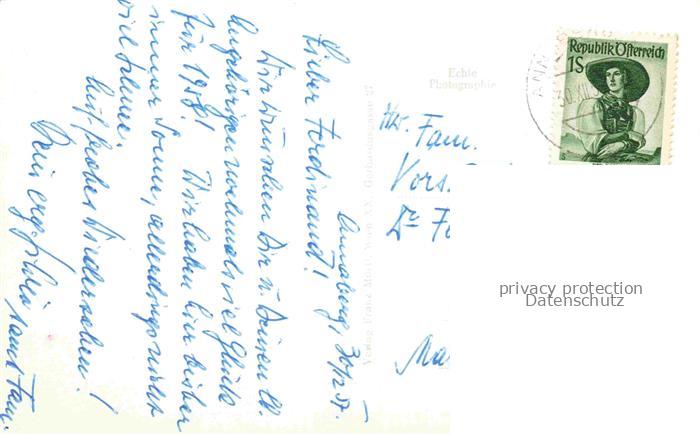 Annaberg, 30/12 57.
Lieber Ferdinand!
Wir wünschen Dir u. Deinen lb.
Angehörigen nochmals viel Glück
für 1958! Wir haben hier bisher
immer Sonne, allerdings nicht
viel Schnee.
Auf frohes Wiedersehen!
Dein samt Fam.
Echte
Photographie
Verlag Franz Mörtl, Wien XX., Gerhardusgasse 27
Republik Österreich
1S
ANNABERG
30.XII.5
Hr. Fam.
Vors.
Dr. Fe
Ma
privacy protection
Datenschutz